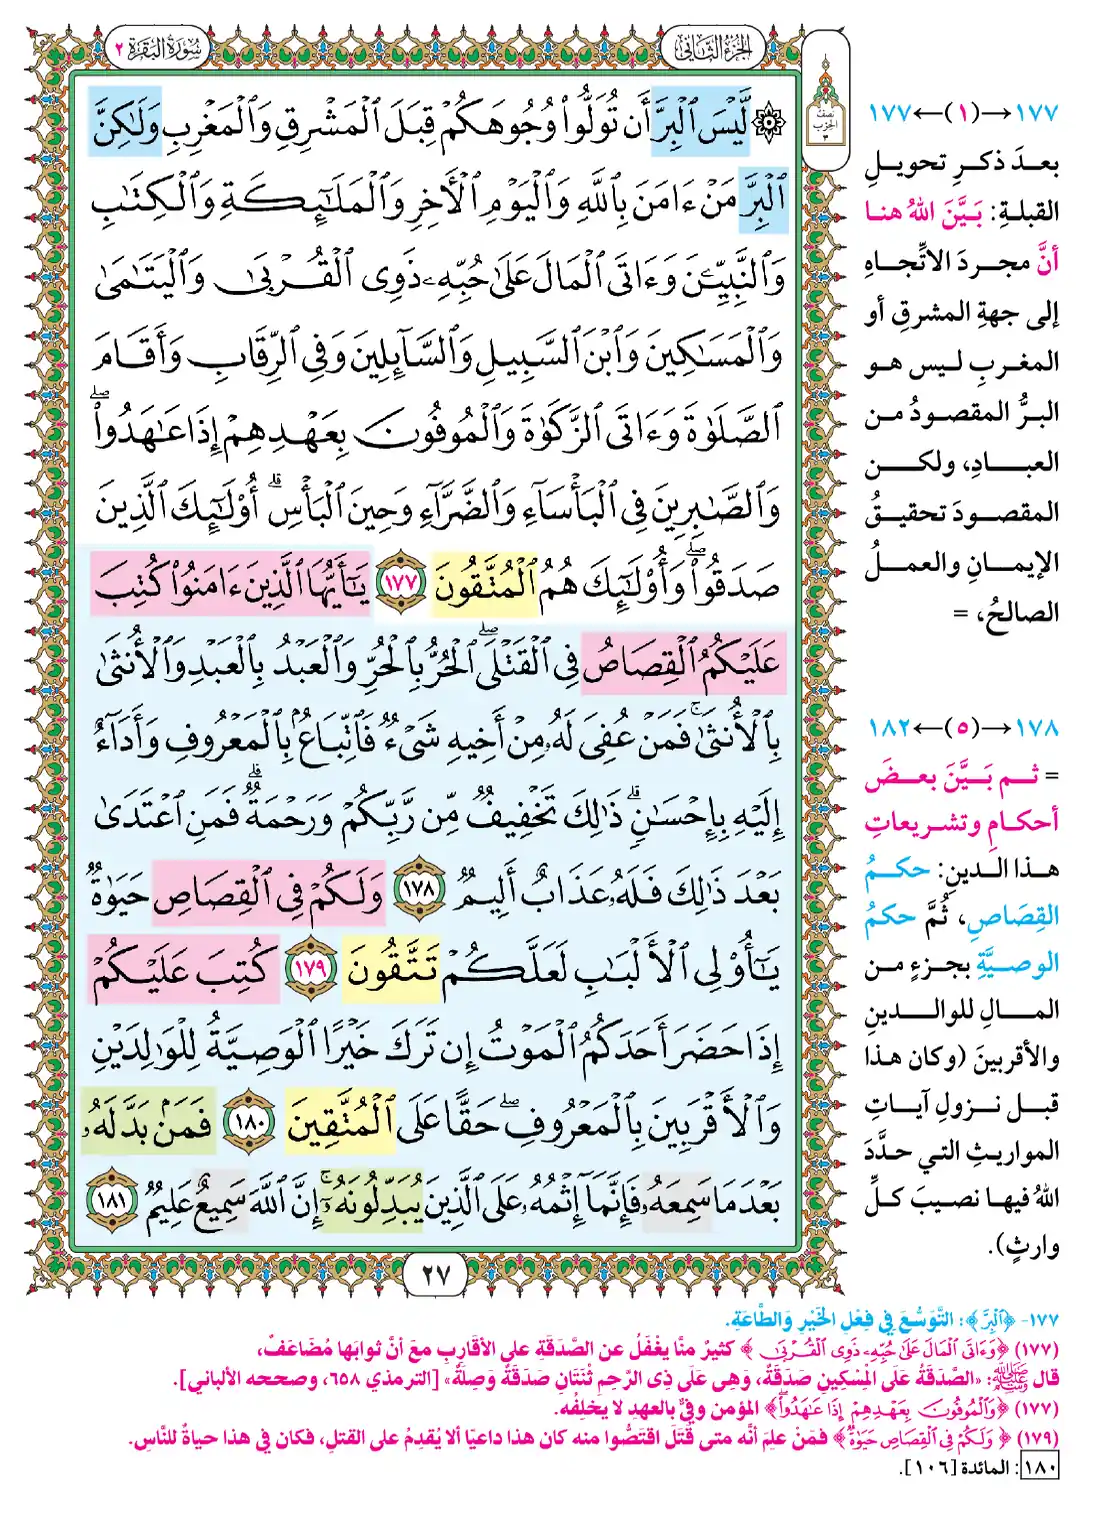 سُورَةُ البَقَرَة ٢
الجُزءُ الثَّانِي
نصف
الحِزب
٣
۞ لَّيْسَ ٱلْبِرَّ أَن تُوَلُّوا۟ وُجُوهَكُمْ قِبَلَ ٱلْمَشْرِقِ وَٱلْمَغْرِبِ وَلَٰكِنَّ
ٱلْبِرَّ مَنْ ءَامَنَ بِٱللَّهِ وَٱلْيَوْمِ ٱلْأَخِرِ وَٱلْمَلَٰٓئِكَةِ وَٱلْكِتَٰبِ
وَٱلنَّبِيِّۦنَ وَءَاتَى ٱلْمَالَ عَلَىٰ حُبِّهِۦ ذَوِى ٱلْقُرْبَىٰ وَٱلْيَتَٰمَىٰ
وَٱلْمَسَٰكِينَ وَٱبْنَ ٱلسَّبِيلِ وَٱلسَّآئِلِينَ وَفِى ٱلرِّقَابِ وَأَقَامَ
ٱلصَّلَوٰةَ وَءَاتَى ٱلزَّكَوٰةَ وَٱلْمُوفُونَ بِعَهْدِهِمْ إِذَا عَٰهَدُوا۟ۖ
وَٱلصَّٰبِرِينَ فِى ٱلْبَأْسَآءِ وَٱلضَّرَّآءِ وَحِينَ ٱلْبَأْسِۗ أُو۟لَٰٓئِكَ ٱلَّذِينَ
صَدَقُوا۟ۖ وَأُو۟لَٰٓئِكَ هُمُ ٱلْمُتَّقُونَ ١٧٧ يَٰٓأَيُّهَا ٱلَّذِينَ ءَامَنُوا۟ كُتِبَ
عَلَيْكُمُ ٱلْقِصَاصُ فِى ٱلْقَتْلَىۖ ٱلْحُرُّ بِٱلْحُرِّ وَٱلْعَبْدُ بِٱلْعَبْدِ وَٱلْأُنثَىٰ
بِٱلْأُنثَىٰۚ فَمَنْ عُفِىَ لَهُۥ مِنْ أَخِيهِ شَىْءٌ فَٱتِّبَاعٌۢ بِٱلْمَعْرُوفِ وَأَدَآءٌ
إِلَيْهِ بِإِحْسَٰنٍۗ ذَٰلِكَ تَخْفِيفٌ مِّن رَّبِّكُمْ وَرَحْمَةٌۗ فَمَنِ ٱعْتَدَىٰ
بَعْدَ ذَٰلِكَ فَلَهُۥ عَذَابٌ أَلِيمٌ ١٧٨ وَلَكُمْ فِى ٱلْقِصَاصِ حَيَوٰةٌ
يَٰٓأُو۟لِى ٱلْأَلْبَٰبِ لَعَلَّكُمْ تَتَّقُونَ ١٧٩ كُتِبَ عَلَيْكُمْ
إِذَا حَضَرَ أَحَدَكُمُ ٱلْمَوْتُ إِن تَرَكَ خَيْرًا ٱلْوَصِيَّةُ لِلْوَٰلِدَيْنِ
وَٱلْأَقْرَبِينَ بِٱلْمَعْرُوفِۖ حَقًّا عَلَى ٱلْمُتَّقِينَ ١٨٠ فَمَنۢ بَدَّلَهُۥ
بَعْدَمَا سَمِعَهُۥ فَإِنَّمَآ إِثْمُهُۥ عَلَى ٱلَّذِينَ يُبَدِّلُونَهُۥٓۚ إِنَّ ٱللَّهَ سَمِيعٌ عَلِيمٌ ١٨١
٢٧
١٧٧→(١)←١٧٧
بعدَ ذكرِ تحويلِ
القبلةِ: بَيَّنَ اللهُ هنا
أنَّ مجردَ الاتِّجاهِ
إلى جهةِ المشرقِ أو
المغربِ ليس هو
البرُّ المقصودُ من
العبادِ، ولكن
المقصودَ تحقيقُ
الإيمانِ والعملُ
الصالحُ، =
١٧٨→(٥)←١٨٢
= ثم بَيَّنَ بعضَ
أحكامِ وتشريعاتِ
هذا الدينِ: حكمُ
القِصَاصِ، ثُمَّ حكمُ
الوصيَّةِ بجزءٍ من
المالِ للوالدينِ
والأقربينَ (وكان هذا
قبل نزولِ آياتِ
المواريثِ التي حدَّدَ
اللهُ فيها نصيبَ كلِّ
وارثٍ).
١٧٧- ﴿ٱلْبِرَّ﴾: التَّوَسُّعَ فِي فِعْلِ الخَيْرِ وَالطَّاعَةِ.
(١٧٧) ﴿وَءَاتَى ٱلْمَالَ عَلَىٰ حُبِّهِۦ ذَوِى ٱلْقُرْبَىٰ﴾ كثيرٌ منَّا يغْفَلُ عن الصَّدَقَةِ على الأقاربِ معَ أنَّ ثوابَها مُضَاعَفٌ،
قال ﷺ: «الصَّدَقَةُ عَلَى المِسْكِينِ صَدَقَةٌ، وَهِيَ عَلَى ذِي الرَّحِمِ ثْنَتَانِ صَدَقَةٌ وَصِلَةٌ» [الترمذي ٦٥٨، وصححه الألباني].
(١٧٧) ﴿وَٱلْمُوفُونَ بِعَهْدِهِمْ إِذَا عَٰهَدُوا۟ۖ﴾ المؤمن وفيٌّ بالعهدِ لا يَخلِفُه.
(١٧٩) ﴿وَلَكُمْ فِى ٱلْقِصَاصِ حَيَوٰةٌ﴾ فمَنْ علِمَ أنَّه متى قَتَلَ اقتَصُّوا منه كان هذا داعيًا ألا يُقدِمُ على القتلِ، فكان في هذا حياةٌ للنَّاسِ.
١٨٠: المائدة [١٠٦].